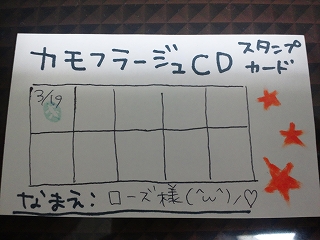 カモフラージュCD スタンプ
カード
3/19
なまえ: ローズ様(^ω^)ノ♡